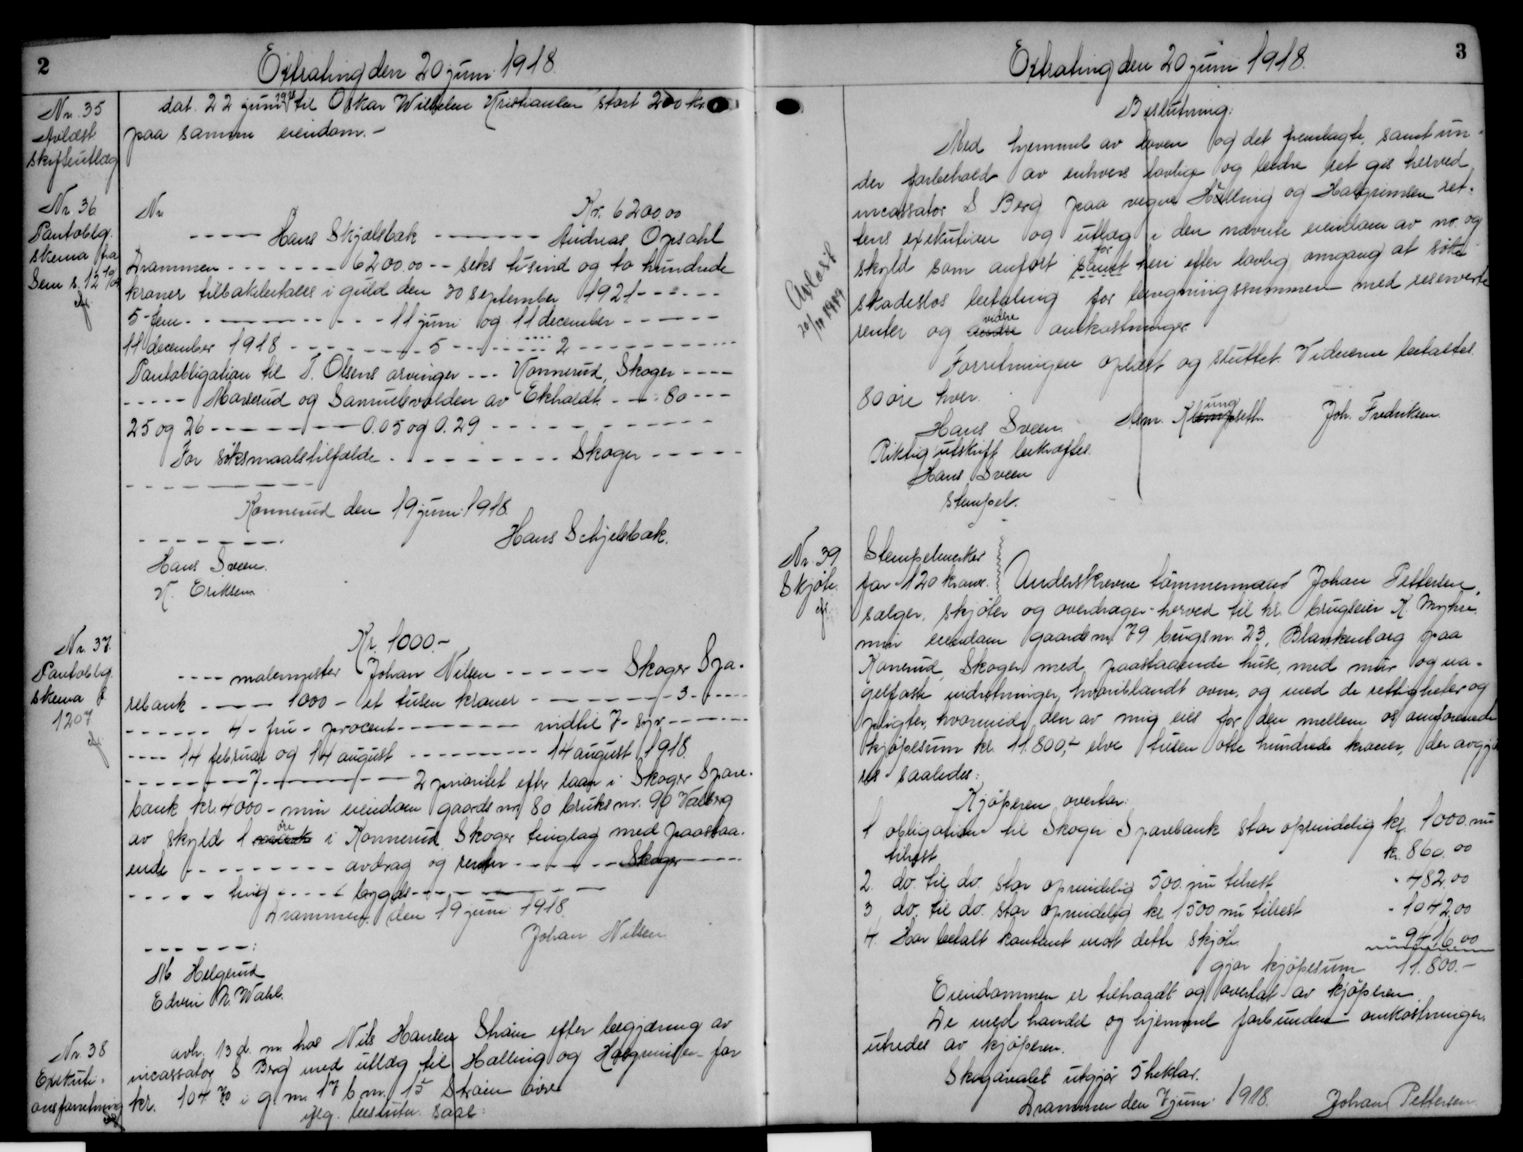 2
Extrating den 20 juni 1918.
Nr. 35
Avlæst
skifteutlæg
dat. 22 juni 1918 til Oskar Wilhelm Kristiansen stort 200 kr
paa samme eiendom.-
Nr. 36
Pantoblg.
skema fra
Sem s. 12
Nr Kr. 6200.00
---- Hans Skjælsbak ------ Andreas Opsahl
Drammen ------ 6200.00 -- seks tusind og to hundrede
kroner tilbakebetales i guld den 20 september 1921 -----
5 - fem ------ 11 juni og 11 december -----
11 december 1918 ------ 5 ------ 2 ------
Pantobligation til T. Olsens arvinger --- Konnerud, Skoger ----
----- Maserud og Samuelsvolden av Ekholdt --- 80 ---
25 og 26 ------ 0.05 og 0.29 ------
For søksmaalstilfælde ------ Skoger -----
Konnerud den 19 juni 1918.
Hans Schjelsbak.
Hans Sveen.
K. Eriksen
Nr. 37.
Pantoblg.
skema f
1207
Kr. 1000-
---- malermester Johan Nilsen ------ Skoger Spa-
rebank ---- 1000 - et tusen kroner ------ 3 -----
------ 4 - fire - procent ------ indtil 7 - syv ------
---- 14 februar og 14 august ------ 14 august 1918.
------ 7 ------ 2 prioritet efter laan i Skoger Spare-
bank kr. 4000 - min eiendom gaards nr. 80 bruks nr. 90 Valberg
av skyld 1 øre i Konnerud Skoger tinglag med paastaa-
ende ------ avdrag og renter ------ Skoger
----- ting ---- bygds ------
Drammen den 19 juni 1918.
Johan Nilsen
M. Helgerud
Edvin N. Wahl.
Nr. 38
Exekuti-
onsforretning
avh. 13 d. m. hos Nils Hansen Straim efter begjæring av
incassator S Berg med utlæg til Halling og Hasgrimsen for
kr. 104.70 i g. nr. 17 b. nr. 15 Straim øvre
efg. beslutn. saal:
3
Extrating den 20 juni 1918.
Beslutning:
Med hjemmel av loven og det fremlagte, samt un-
der forbehold av enhvers lovlig og bedre ret gis herved
incassator S Berg paa vegne Halling og Hasgrimsen ret-
tens exekution og utlæg i den nævnte eiendom av nr. og
skyld som anført for heri efter lovlig omgang at søke
skadesløs betaling for længningssummen med reserverte
renter og videre omkostninger.
Forretningen oplæst og sluttet. Vidnerne betaltes
80 øre hver.
Hans Sveen. Asm. Klungseth. Joh. Fredriksen
Riktig utskrift bekræftes
Hans Sveen
Stempel.
Avlæst
20/11 1919
Nr. 39
Skjøte
Stempelmerker
for 120 kroner. Underskrevne tømmermand Johan Pettersen,
sælger, skjøter og overdrager herved til hr. brugseier K. Myhre
min eiendom gaards nr. 79 brugs nr. 23, Blankenborg paa
Konerud, Skoger med paastaaende huse, med mur og na-
gelfaste indretninger, hvoriblandt ovne, og med de rettigheter og
pligter, hvormed den av mig eies for den mellem os omforenede
kjøpesum kr. 11.800,- elve tusen otte hundrede kroner, der avgjø-
res saaledes:
Kjøperen overtar:
1 obligation til Skoger Sparebank stor oprindelig kr. 1000 nu
tilrest kr. 860.00
2. do. til do. stor oprindelig 500 nu tilrest - 482.00
3, do. til do. stor oprindelig kr 1500 nu tilrest - 1042.00
4. Har betalt kontant mot dette skjøte - 9416.00
gjør kjøpesum 11.800.-
Eiendommen er tiltraadt og overtat av kjøperen
De med handel og hjemmel forbundne omkostninger
utredes av kjøperen.
Skogarealet utgjør 5 hektar.
Drammen den 7 juni 1918. Johan Pettersen